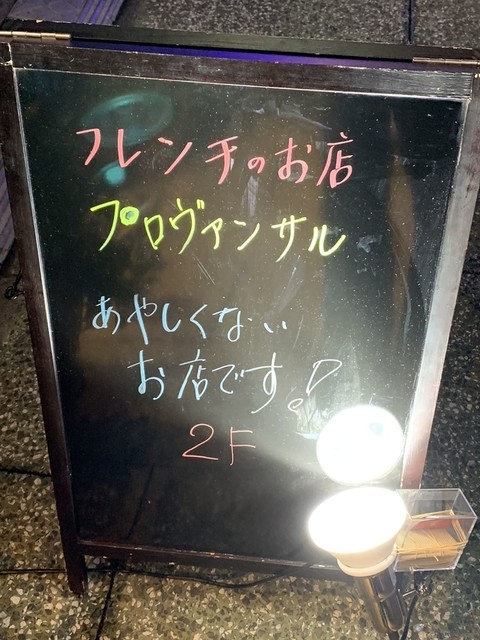 フレンチのお店
プロヴァンサル
あやしくない
お店です!
2F